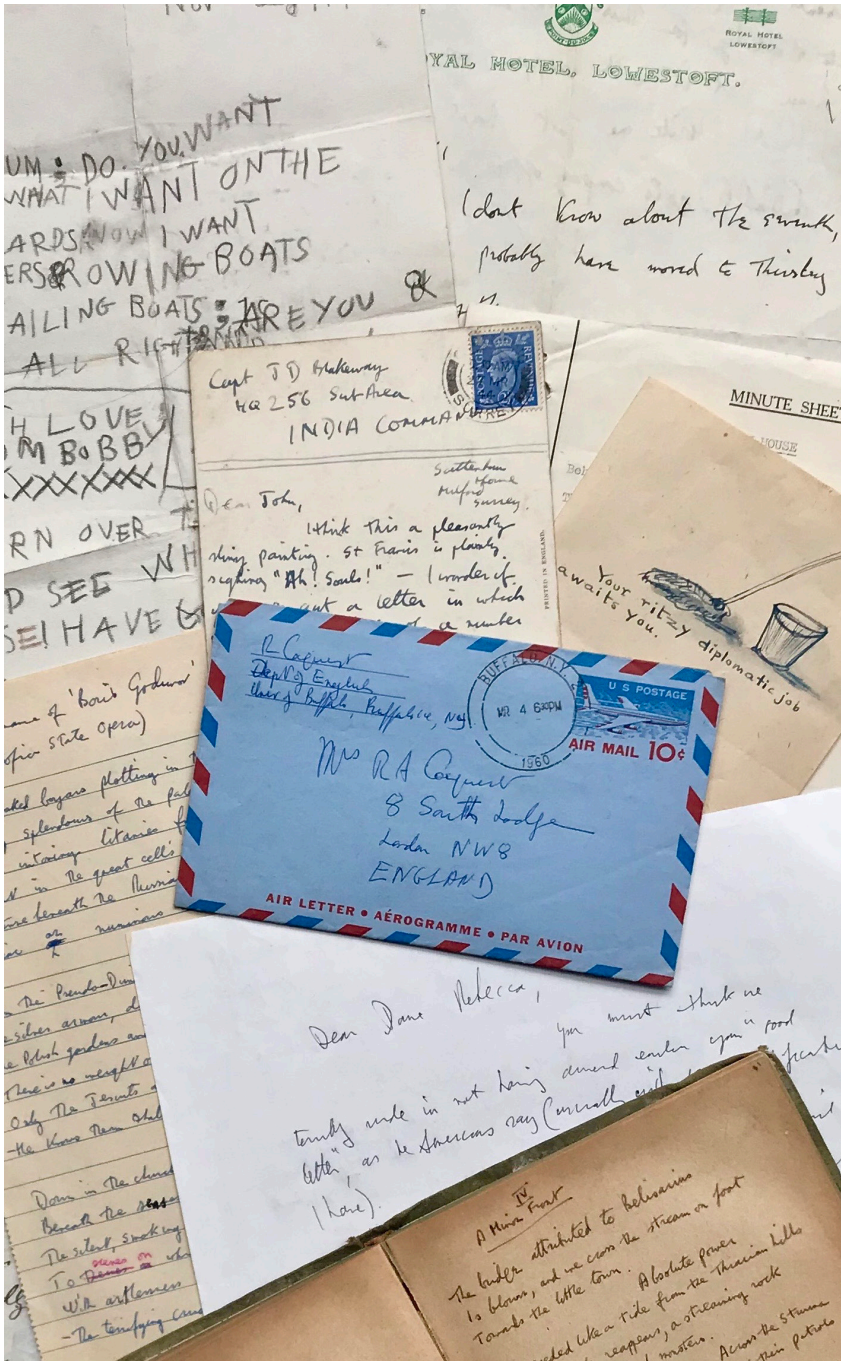 UM: DO. YOU WANT
WHAT I WANT ON THE
ARDS: NOW I WANT
ERS ROWING BOATS
AILING BOATS: ARE YOU
ALL RIGHT
H LOVE
OM BOBBY
XXXXXXX
RN OVER T
D SEE WH
SE I HAVE G
ROYAL HOTEL
LOWESTOFT
YAL HOTEL, LOWESTOFT.
I dont know about the seventh,
probably have moved to Thirsley
MINUTE SHEE
HOUSE
Your ritzy diplomatic job
awaits you.
Capt J D Blakeway
HQ 256 Sub Area
INDIA COMMAN
REVENUE
SURREY
Milford
Surrey.
Dear John,
I think this a pleasantly
painting. St Francis is plainly
sighing "Ah! Souls!" — I wonder if
out a letter in which
of a number
PRINTED IN ENGLAND.
R Conquest
Dept of English
Univ of Buffalo, Buffalo, NY
BUFFALO, N.Y.
MR 4 630PM
1960
U S POSTAGE
AIR MAIL 10¢
Mrs R A Conquest
8 South Lodge
London NW8
ENGLAND
AIR LETTER • AÉROGRAMME • PAR AVION
name of 'Boris Godunov'
ofia State Opera)
aked boyars plotting in t
splendours of the pal
intoning litanies f
in the great cells
beneath the Russia
numinous
the Pseudo-Dimi
silver armour, d
e Polish gardens an
There is no weight o
Only the Jesuits
-He knows them
Down in the church
Beneath the
The silent, smoking
To
with artlessness
-The terrifying
Dear Dame Rebecca,
you must think me
terribly rude in not having answered earlier your "good
letter", as the Americans say (
I have).
IV
A Minor Front
The bridge attributed to Belisarius
Is blown, and we cross the stream on foot
Towards the little town.
Absolute power
eded like a tide from the Thracian hills
reappears, a streaming rock
monsters.
Across the Struma
their patrols